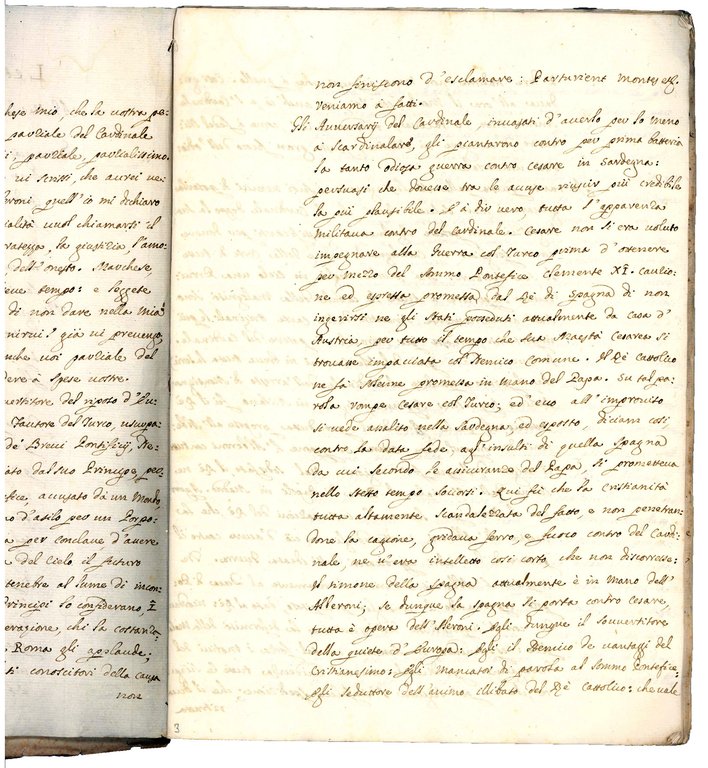 chese mio, che la vostra pe-
parziale del Cardinale
i parziale, parzialissimo.
vi scritti, che aurei ve-
beroni quell' io mi dichiaro
ialità vuol chiamarsi il
la giustizia, l'amo-
dell' onesto. Marchese,
ieve tempo: e
di non dare nella mia
già vi prevengo,
nche voi parziale del
dere à spese vostre.
vertitore del riposo d'Eu-
Fautore del Turco, usurpa-
de' Brevi Pontificij, Ne-
ato dal suo Principe, per-
efice, accusato da un Mondo,
no d'asilo per un Porpo-
a per conclave d'avere
e del Cielo il futuro
tenebre al lume di incon-
Principi lo considerano
erazione, chi la costanza
Roma gli applaude,
ti conoscitori della causa
non
non finiscono d'esclamare: Parturient montes &c.
veniamo à fatti.
Gli Avversarij del Cardinale invasati d'averlo per lo meno
à Scardinalare, gli piantarono contro per prima batteria
la tanto odiosa guerra contro Cesare in Sardegna:
persuasi che dovesse tra le accuse riuscir più credibile
la più plausibile. E à dir vero, tutta l'apparenza
militava contro del Cardinale. Cesare non si era voluto
impegnare alla Guerra col Turco prima d'ottenere
per mezzo del Sommo Pontefice Clemente XI. cauzio-
ne ed espressa promessa dal Rè di Spagna di non
ingerirsi ne gli Stati posseduti attualmente da casa d'
Austria, per tutto il tempo che sua Maestà Cesarea si
trovasse impacciata col Nemico Comune. Il Rè Cattolico
ne fà solenne promessa in mano del Papa. Su tal pa-
rola rompe Cesare col Turco; ed' ecco all' improviso
si vede assalito nella Sardegna, ed esposto, diciam così,
contro la data fede, agl' insulti di quella Spagna
da cui secondo le assicuranze del Papa, si prometteva
nello stesso tempo socorsi. Qui fù che la Cristianità
tutta altamente scandalezata del fatto, e non penetran-
done la cagione, gridava ferro, e fuoco contro del Cardi-
nale, ne v'era intelletto così corto, che non discorresse:
Il timone della Spagna attualmente è in mano dell'
Alberoni; se dunque la Spagna si porta contro Cesare,
tutta è opera dell' Alberoni. Egli dunque il sovvertitore
della quiete d'Europa: Egli il Nemico de vantaggi del
Cristianesimo: Egli mancator di parola al Sommo Pontefice:
Egli seduttore dell'animo illibato del Rè Cattolico: che vale
3